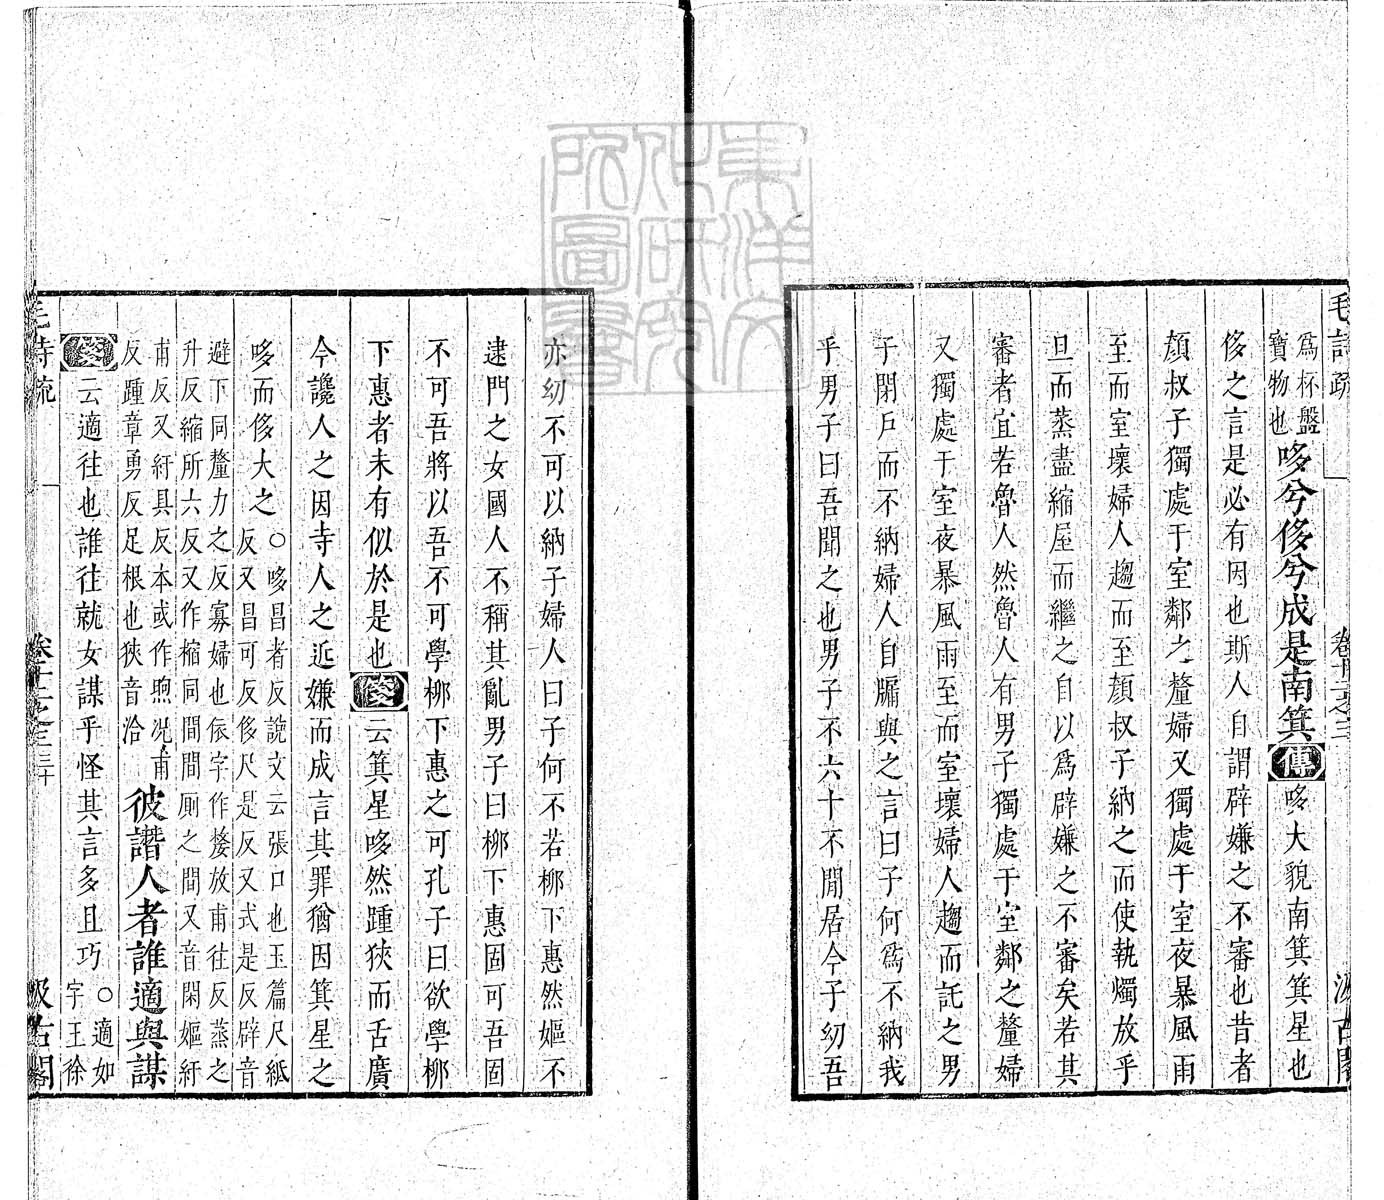 毛詩疏 卷十二之三 汲古閣
為杯盤寶物也哆兮侈兮成是南箕傳哆大貌南箕箕星也
侈之言是必有因也斯人自謂辟嫌之不審也昔者
顏叔子獨處于室鄰之釐婦又獨處于室夜暴風雨
至而室壞婦人趨而至顏叔子納之而使執燭放乎
旦而蒸盡縮屋而繼之自以爲辟嫌之不審矣若其
審者宜若魯人然魯人有男子獨處于室鄰之釐婦
又獨處于室夜暴風雨至而室壞婦人趨而託之男
子閉戶而不納婦人自牖與之言曰子何爲不納我
乎男子曰吾聞之也男子不六十不閒居今子幼吾
亦幼不可以納子婦人曰子何不若柳下惠然嫗不
逮門之女國人不稱其亂男子曰柳下惠固可吾固
不可吾將以吾不可學柳下惠之可孔子曰欲學柳
下惠者未有似於是也箋云箕星哆然踵狹而舌廣
今讒人之因寺人之近嫌而成言其罪猶因箕星之
哆而侈大之○哆昌者反說文云張口也玉篇尺紙
反又昌可反侈尺是反又式是反辟音
避下同釐力之反寡婦也依字作嫠放甫往反蒸之
升反縮所六反又作樎同閒閒厠之閒又音閑嫗紆
甫反又紆具反本或作煦况甫
反踵章勇反足根也狹音洽彼譖人者誰適與謀
箋云適往也誰往就女謀乎怪其言多且巧○適如
字王徐
毛詩疏 卷十二之三 三十 汲古閣